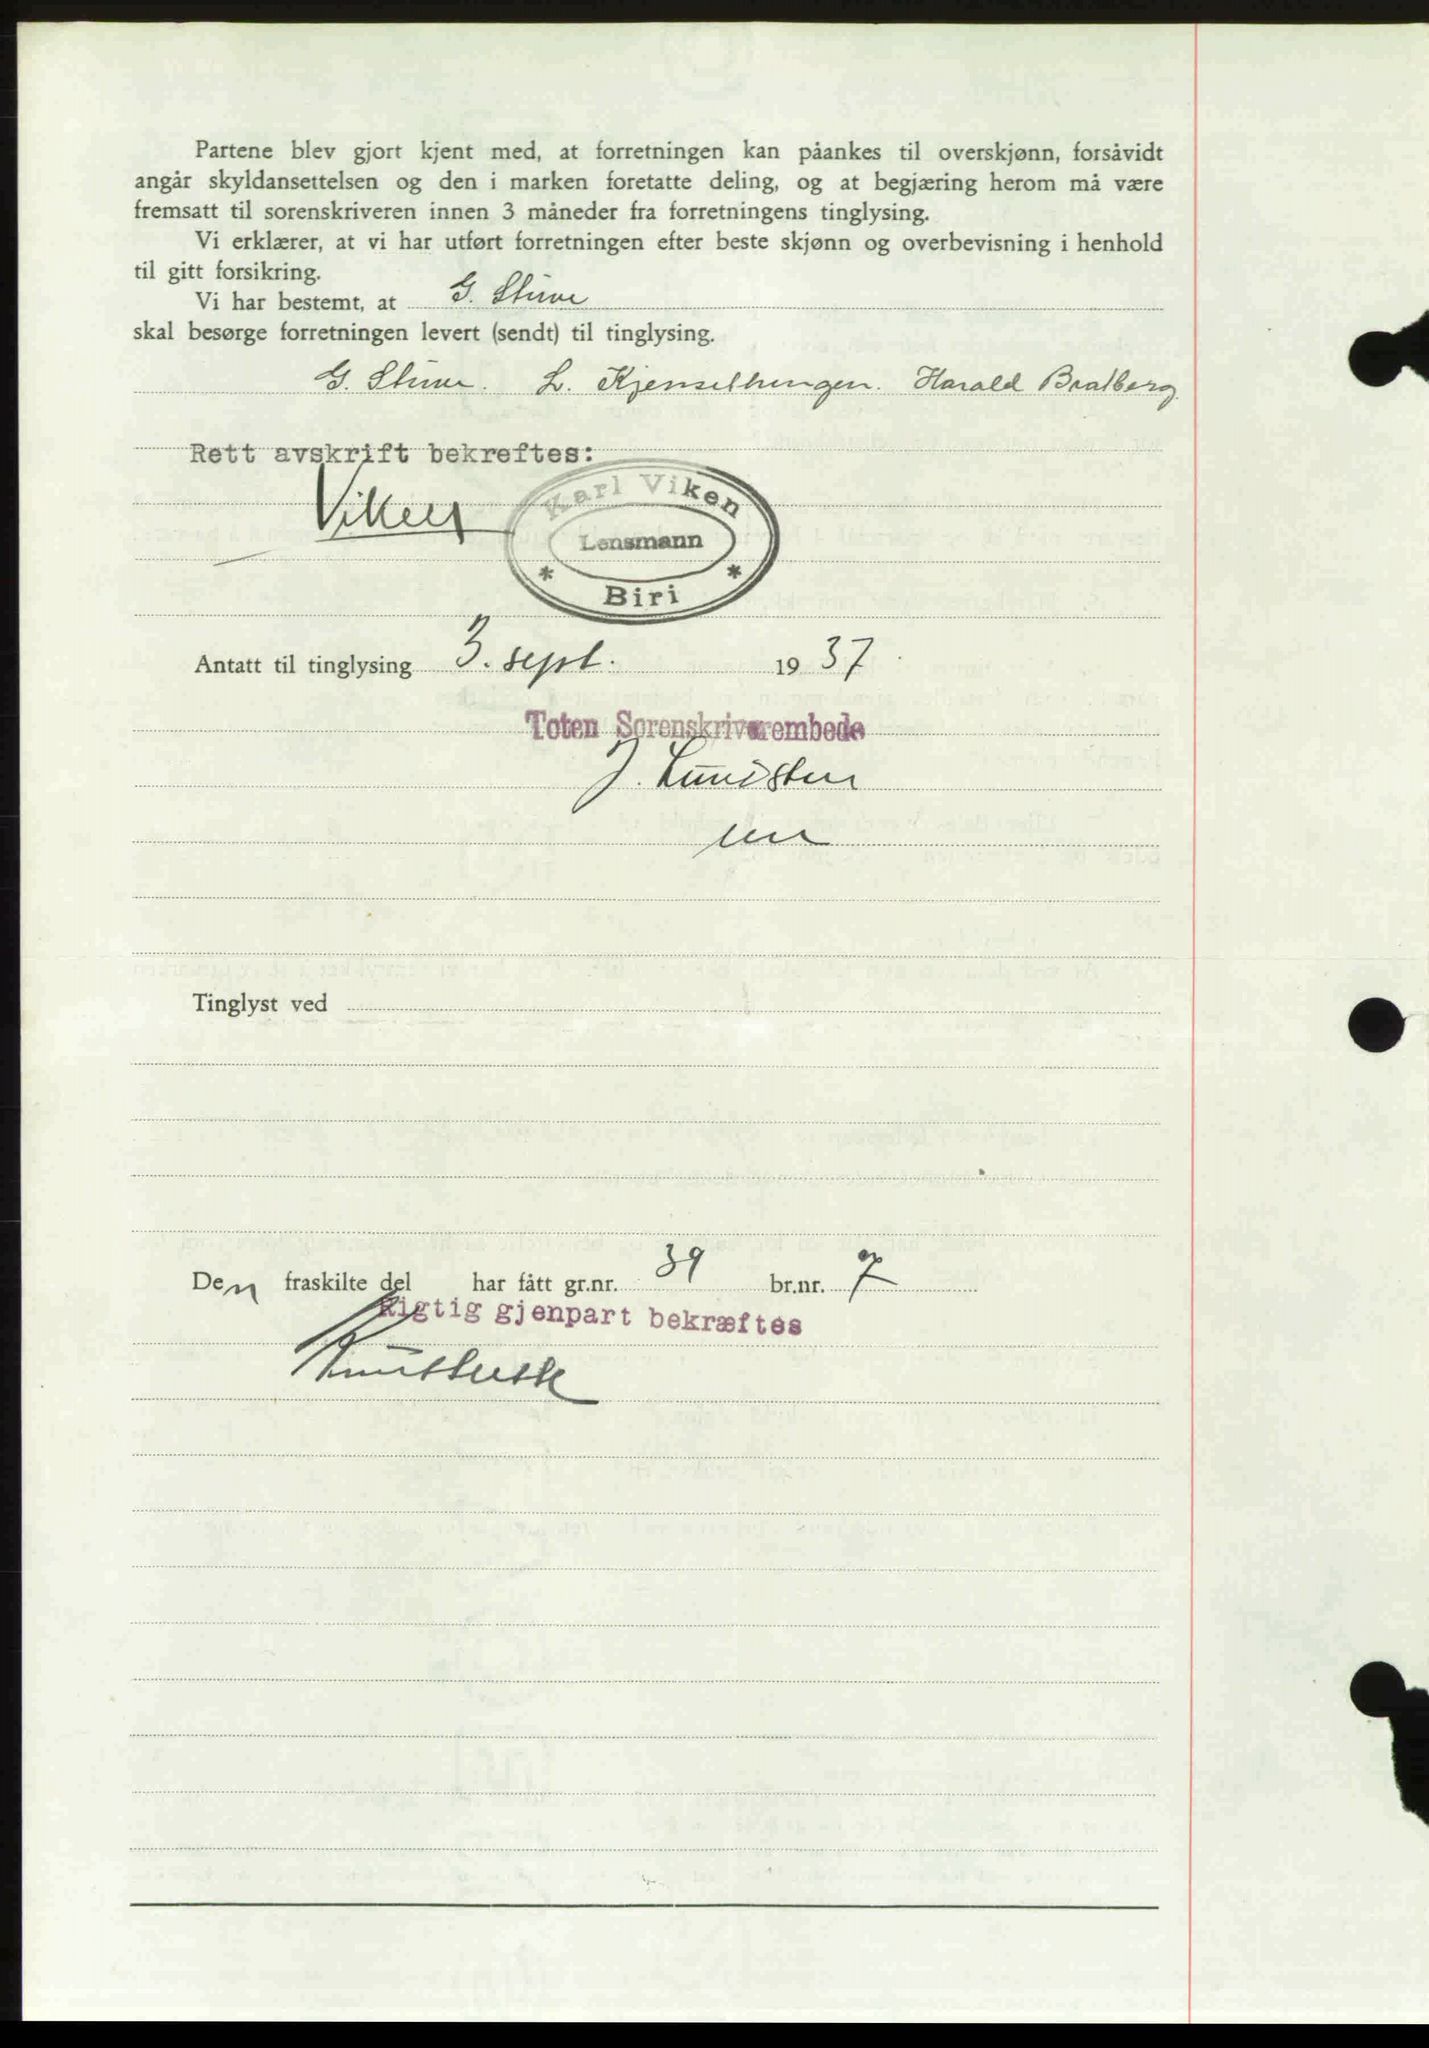 Partene blev gjort kjent med, at forretningen kan påankes til overskjønn, forsåvidt
angår skyldansettelsen og den i marken foretatte deling, og at begjæring herom må være
fremsatt til sorenskriveren innen 3 måneder fra forretningens tinglysing.
Vi erklærer, at vi har utført forretningen efter beste skjønn og overbevisning i henhold
til gitt forsikring.
Vi har bestemt, at G. Stuve
skal besørge forretningen levert (sendt) til tinglysing.
G. Stuve. L. Kjensethengen. Harald Bratberg
Rett avskrift bekreftes:
Viken
Karl Viken
Lensmann
* Biri *
Antatt til tinglysing 3. sept. 1937
Toten Sorenskriverembede
J. Lundsten
Tinglyst ved
Den fraskilte del har fått gr.nr. 39 br.nr. 7
Rigtig gjenpart bekræftes